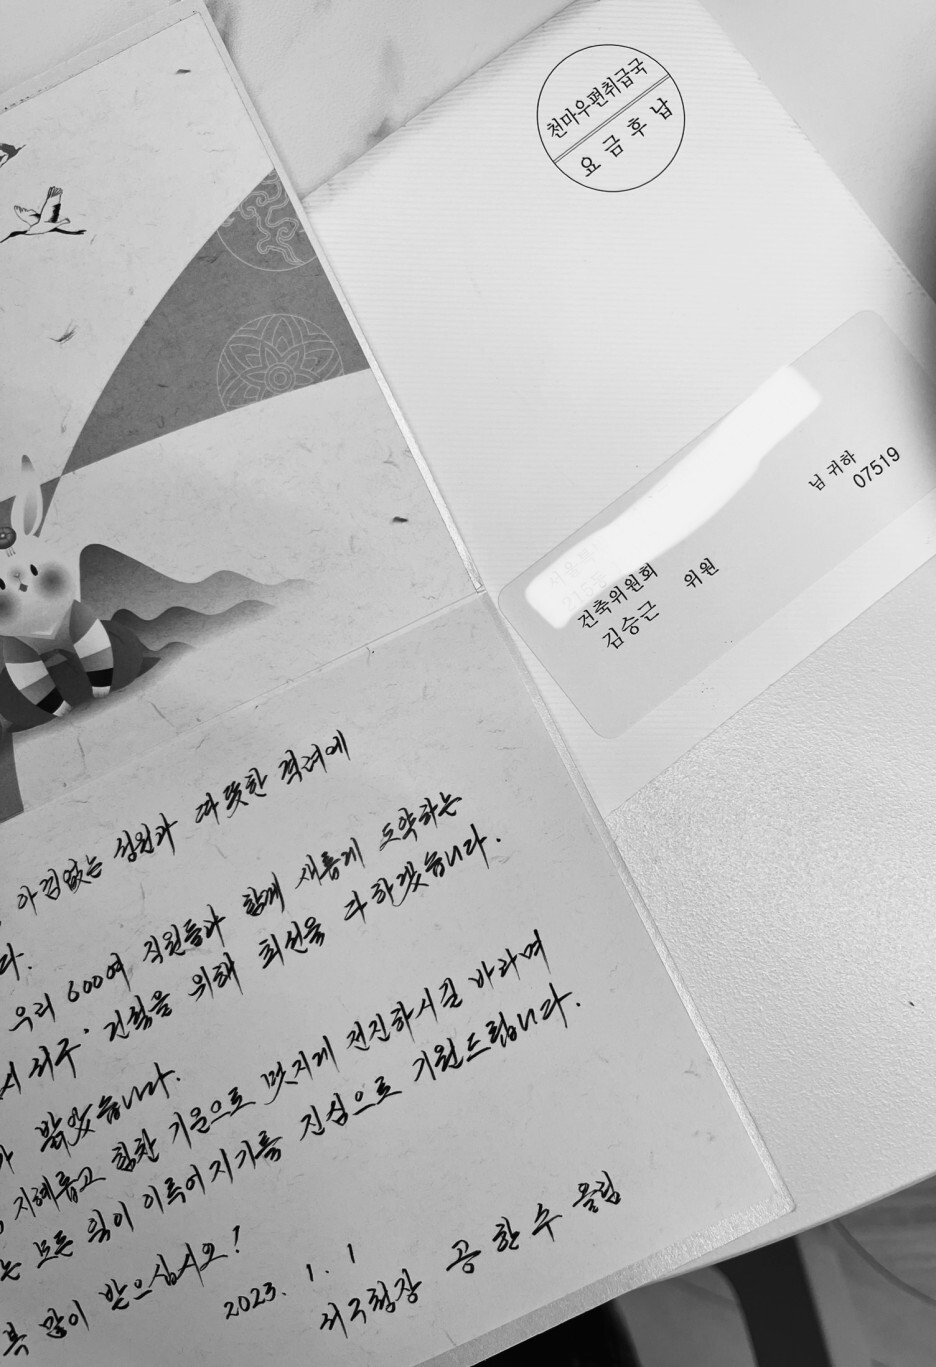 천마우편취급국
요금후납
님 귀하
07519
건축위원회
김승근 위원
아낌없는 성원과 따뜻한 격려에
우리 600여 직원들과 함께 새롭게 도약하는
다.
서구 건설을 위해 최선을 다하겠습니다.
밝았습니다.
지혜롭고 힘찬 기운으로 멋지게 전진하시길 바라며
는 모든 일이 이루어지기를 진심으로 기원드립니다.
복 많이 받으십시오!
2023. 1. 1
서구청장 공한수 올림